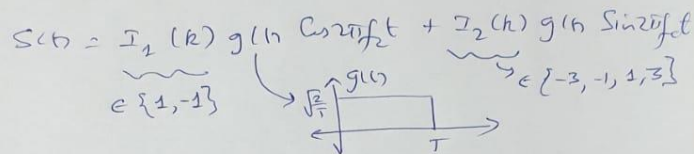 S(t) = I₁(k) g(t) Cos2πf꜀t + I₂(k) g(t) Sin2πf꜀t
∈ {1,-1}
∈ {-3, -1, 1, 3}
g(t)
√2/T
T